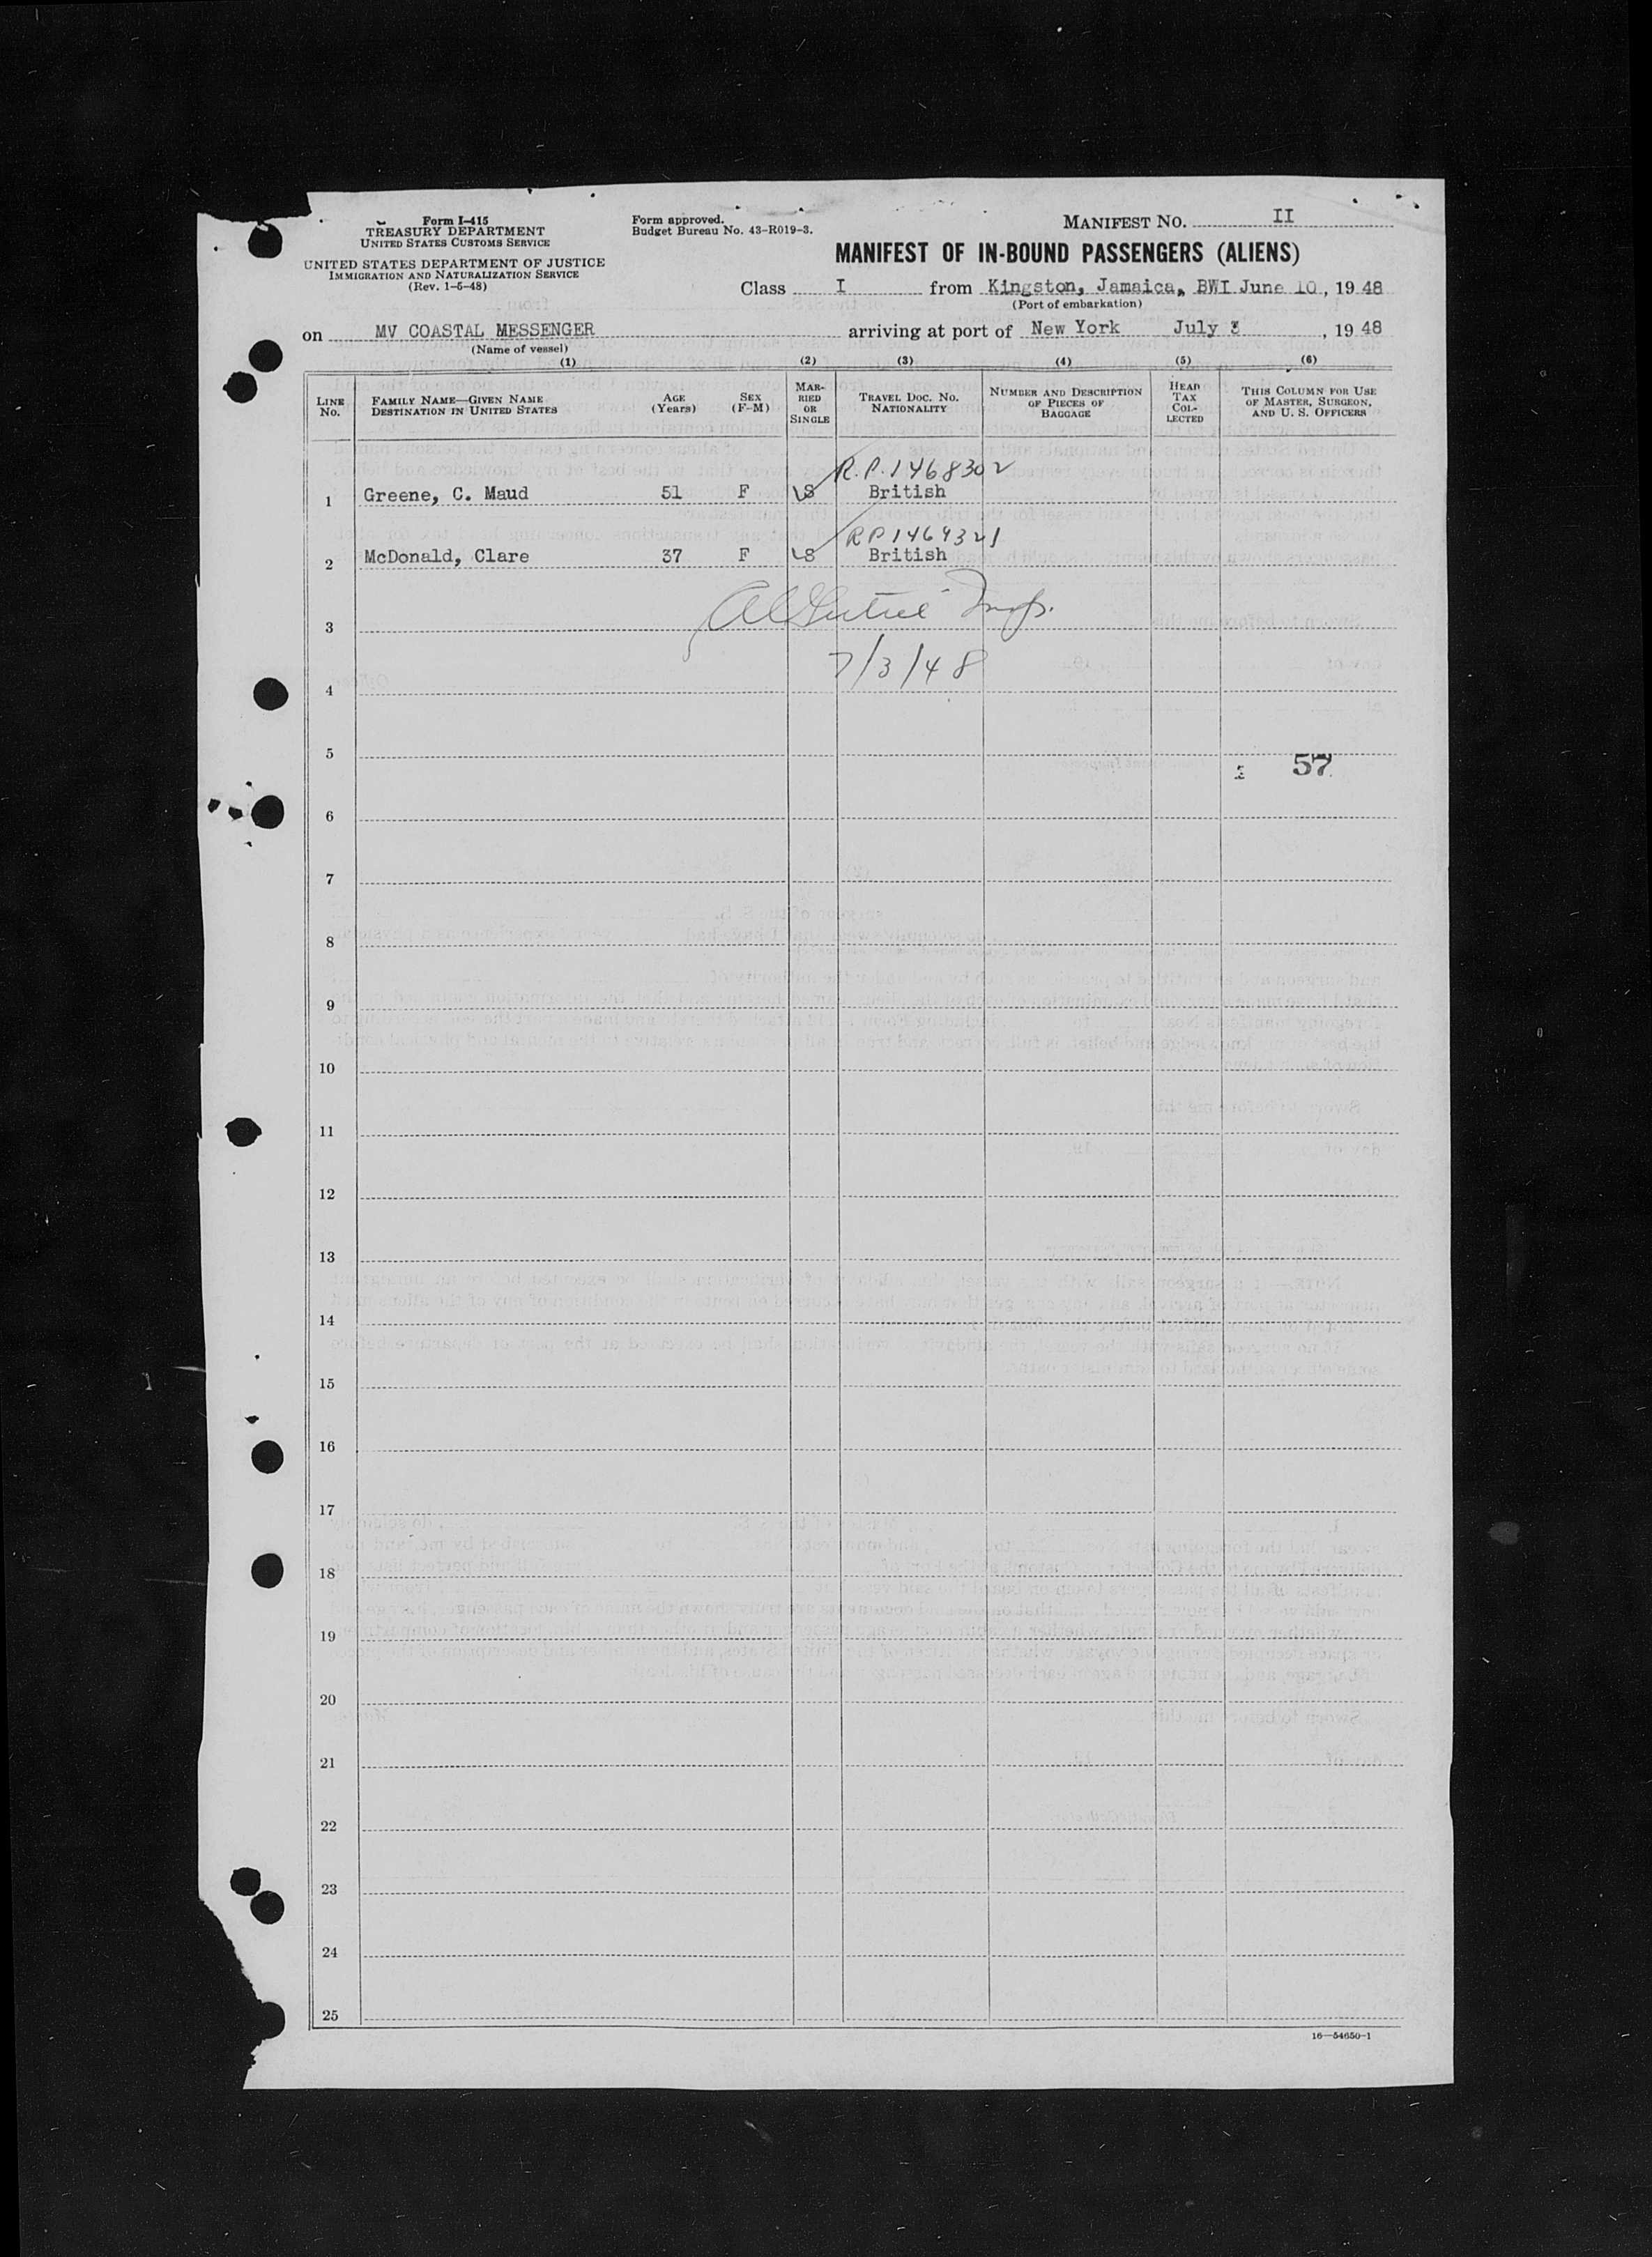 Form I-415
TREASURY DEPARTMENT
UNITED STATES CUSTOMS SERVICE
UNITED STATES DEPARTMENT OF JUSTICE
IMMIGRATION AND NATURALIZATION SERVICE
(Rev. 1-5-48)
Form approved.
Budget Bureau No. 43-R019-3.
MANIFEST NO. II
MANIFEST OF IN-BOUND PASSENGERS (ALIENS)
Class I from Kingston, Jamaica, BWI June 10, 1948
(Port of embarkation)
on MV COASTAL MESSENGER arriving at port of New York July 3, 1948
(Name of vessel)
(1) (2) (3) (4) (5) (6)
LINE No. FAMILY NAME—GIVEN NAME DESTINATION IN UNITED STATES AGE (Years) SEX (F-M) MARRIED OR SINGLE TRAVEL DOC. NO. NATIONALITY NUMBER AND DESCRIPTION OF PIECES OF BAGGAGE HEAD TAX COLLECTED THIS COLUMN FOR USE OF MASTER, SURGEON, AND U. S. OFFICERS
R.P. 1468302
1 Greene, C. Maud 51 F S British
RP 1469321
2 McDonald, Clare 37 F S British
3
7/3/48
4
5
57
6
7
8
9
10
11
12
13
14
15
16
17
18
19
20
21
22
23
24
25
16—54650-1